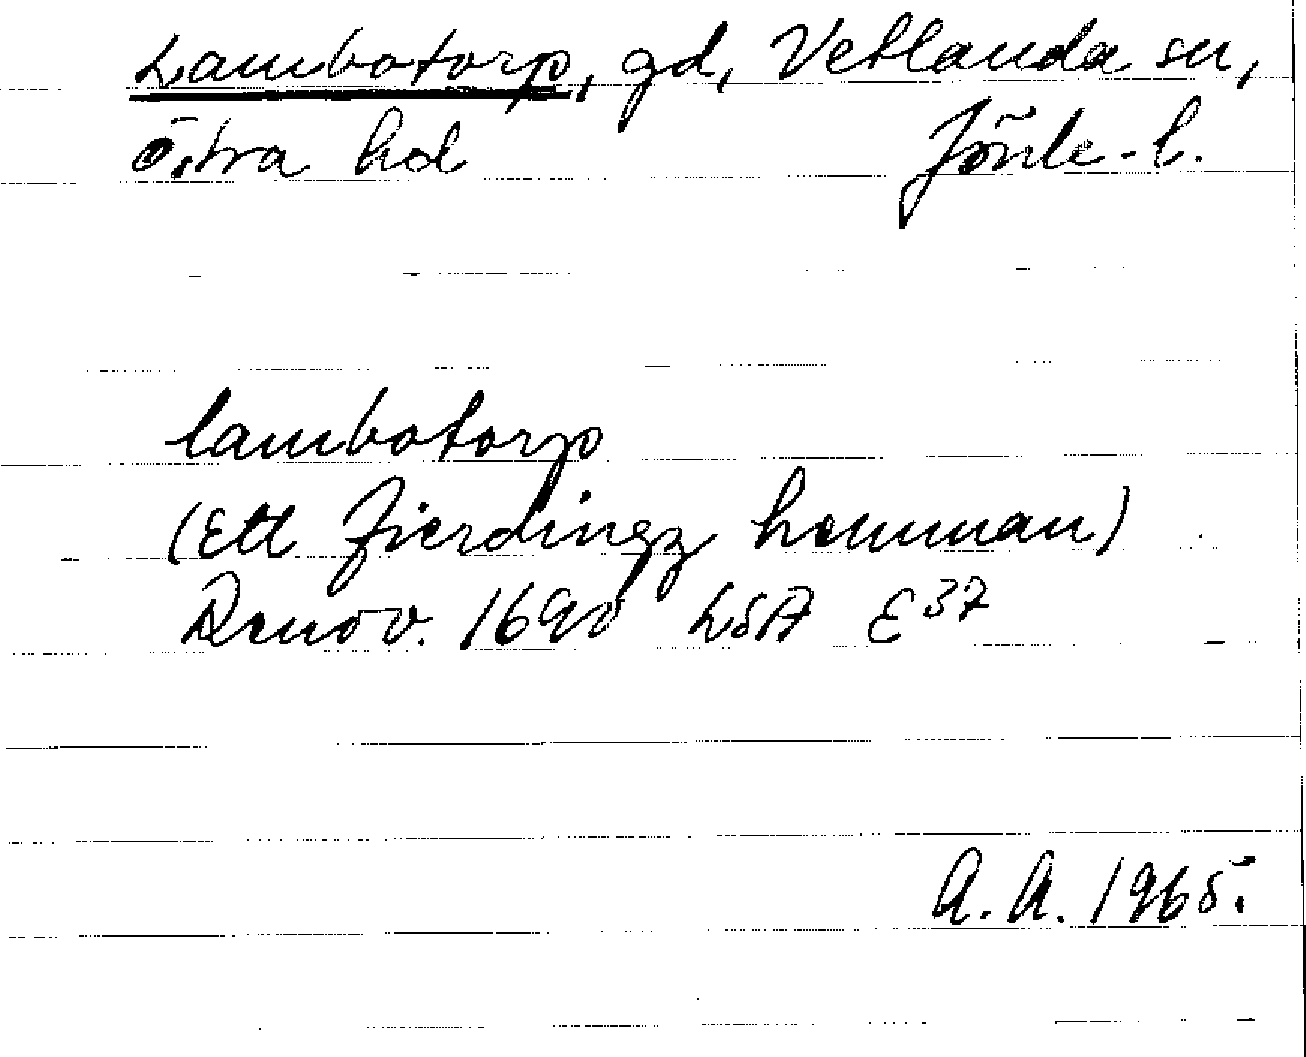 Lambotorp, gd, Vetlanda sn,
Östra hd Jönk. l.
lambotorp
(Ett fierdingz hemman)
Renov. 1690 LSA E37
A. A. 1965.